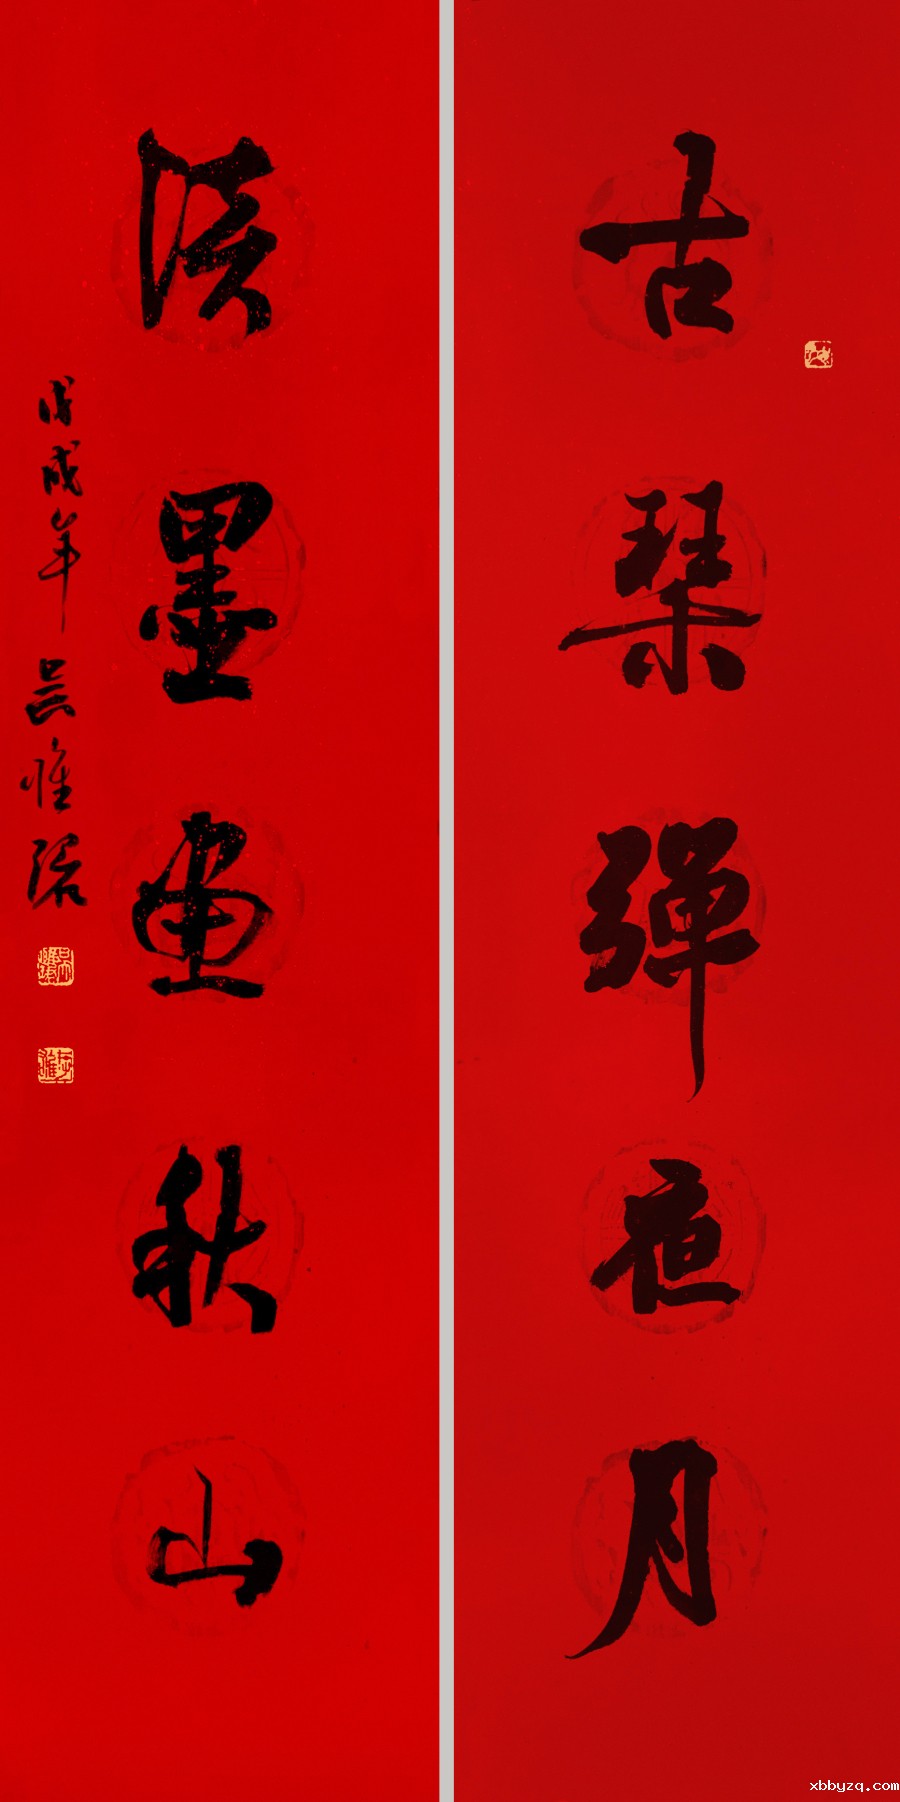 古琴彈夜月
淡墨画秋山
戊戌年 吴惟
xbbyzq.com